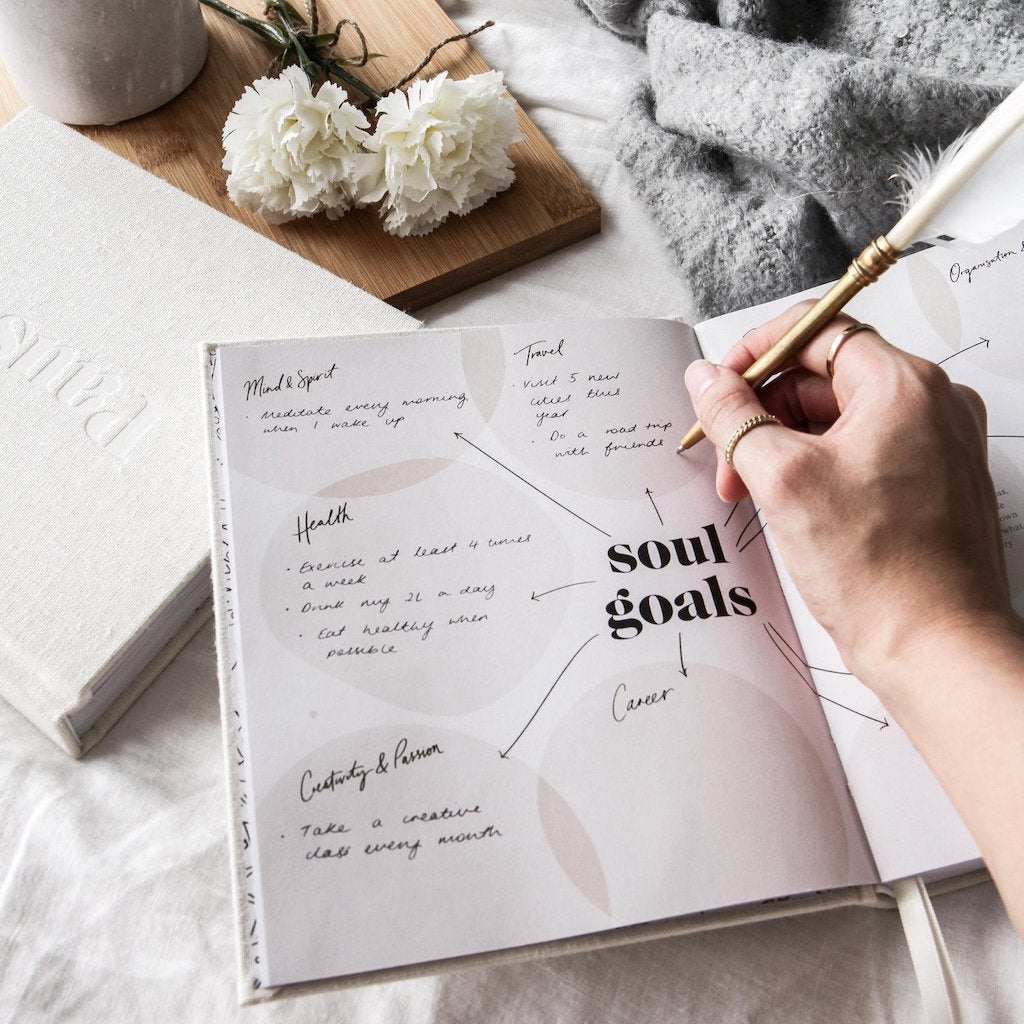 Mind & Spirit
· Meditate every morning
when I wake up
Travel
· Visit 5 new
cities this
year
· Do a road trip
with friends
Health
· Exercise at least 4 times
a week
· Drink my 2L a day
· Eat healthy when
possible
soul
goals
Creativity & Passion
· Take a creative
class every month
Career
Organisation &
own
what